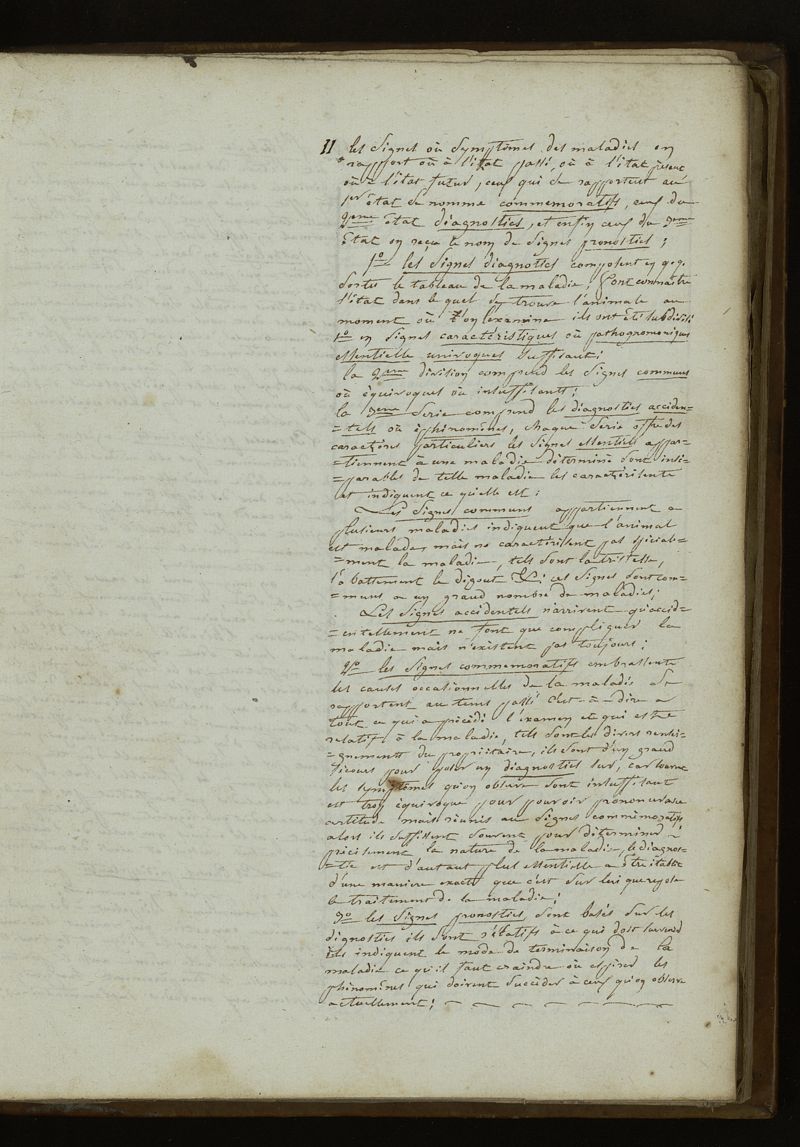 11 les signes où symptômes des maladies on
rapport où à l'état passé, où à l'état présent
où à l'état futur, ceux qui se rapportent au
1er état se nomme commemoratifs, ceux du
2eme état diagnostics, et enfin ceux du 3eme
état on reçu le nom de signes pronostics;
1o les signes diagnostics composent en q.q.
sortes le tableau de la maladie; font connaître
l'état dans le quel se trouve l'animale au
moment où l'on l'examine ils ont été subdivisé
1o en signes caractéristiques où pathognomoniques
essentielle univoques suffisant;
la 2eme division comprend les signes communs
où équivoques où insuffisants;
la 3eme serie comprend les diagnostics acciden=
=tels où éphinomènes, chaque serie offre des
caractères particuliers les signes essentiels appar=
=tiennent à une maladie déterminé sont insé=
=parables de telle maladie les caractérisente
et indiquent ce qu'elle est:
Les signes communs appartiennent a
plusieurs maladies indiquent que l'animal
est malade, mais ne caractérisent pas spéciale=
=ment la maladie, tels sont la tristesse,
l'abattement le dégout &c: ces signes sont com=
=muns a un grand nombre de maladies;
Les signes accidentels n'arrivent qu'accid=
=entellement ne font que compliquer la
maladie mais n'existent pas toujours;
2o les signes commemoratifs embrassente
les causes occationnelles de la maladie se
rapportent au tems passé c'est-à-dire a
tout ce qui a précédé l'examen et qui est
relatif à la maladie, tels sont les divers rensei=
=gnements du propriétaire, ils sont d'un grand
secours pour poser un diagnostics sur, car
les symptômes qu'on observe sont insuffisant
est trop équivoque pour pouvoir prononcer avec
certitude mais réunis au signes commémoratifs
alors ils suffissent souvent pour déterminer
précisement la nature de la maladie, le diagnos=
=tic est d'autant plus essentielle a être établi
d'une maniere exacte que c'est sur lui que repose
le traitement de la maladie;
3o les signes pronostics sont basés sur les
dignostics ils sont rélatifs à ce qui doit survenir
ils indiquent le mode de terminaison de la
maladie ce qu'il faut craindre où espérer les
phénomènes qui doivent succéder à ceux qu'on observe
actuellement;